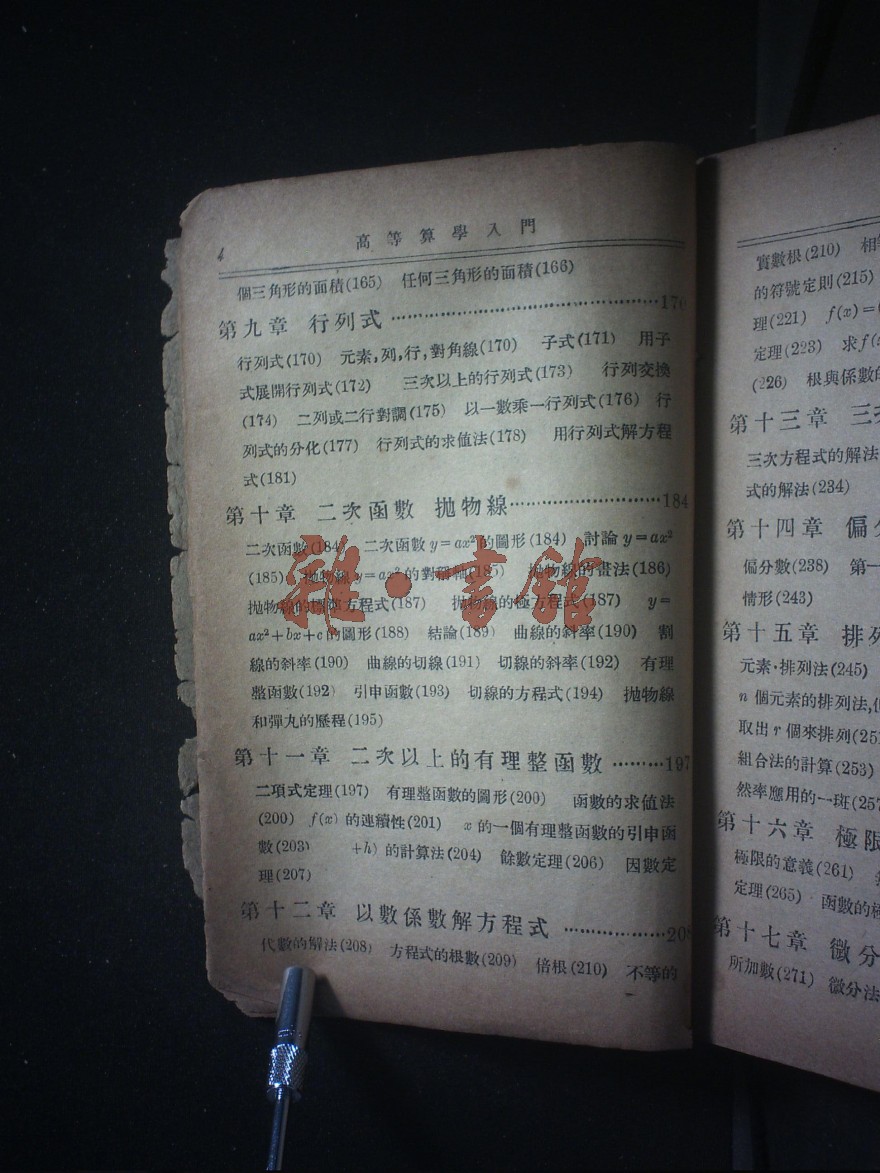 4
高等算學入門
個三角形的面積(165) 任何三角形的面積(166)
第九章 行列式 ……………………………… 170
行列式(170) 元素,列,行,對角線(170) 子式(171) 用子
式展開行列式(172) 三次以上的行列式(173) 行列交換
(174) 二列或二行對調(175) 以一數乘一行列式(176) 行
列式的分化(177) 行列式的求値法(178) 用行列式解方程
式(181)
第十章 二次函數 拋物線 …………………… 184
二次函數(184) 二次函數 y=ax²的圖形(184) 討論 y=ax²
(185) 拋物線 y=ax²的對稱軸(185) 拋物線的畫法(186)
拋物線的標準方程式(187) 拋物線的極方程式(187) y=
ax²+bx+c的圖形(188) 結論(189) 曲線的斜率(190) 割
線的斜率(190) 曲線的切線(191) 切線的斜率(192) 有理
整函數(192) 引申函數(193) 切線的方程式(194) 拋物線
和彈丸的歷程(195)
第十一章 二次以上的有理整函數 ……… 197
二項式定理(197) 有理整函數的圖形(200) 函數的求値法
(200) f(x) 的連續性(201) x 的一個有理整函數的引申函
數(203) +h) 的計算法(204) 餘數定理(206) 因數定
理(207)
第十二章 以數係數解方程式 …………… 208
代數的解法(208) 方程式的根數(209) 倍根(210) 不等的
雜·書館
實數根(210) 相
的符號定則(215)
理(221) f(x)=
定理(223) 求f(x
(226) 根與係數的
第十三章 三
三次方程式的解法
式的解法(234)
第十四章 偏分
偏分數(238) 第一
情形(243)
第十五章 排列
元素·排列法(245)
n 個元素的排列法,
取出 r 個來排列(25
組合法的計算(253)
然率應用的一斑(257
第十六章 極限
極限的意義(261)
定理(265) 函數的極
第十七章 微分
所加數(271) 微分法